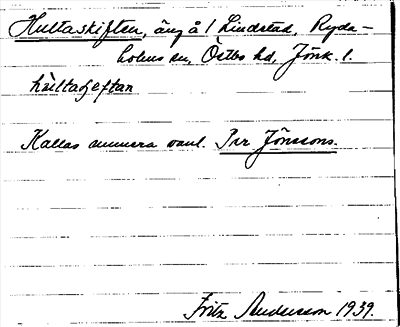 Hultaskiften, äng å 1 Lindstad, Ryda-
holms sn, Östbo hd, Jönk. l.
hùltaʃeftan
Kallas numera vanl. Per Jönssons.
Fritz Andersson 1939.